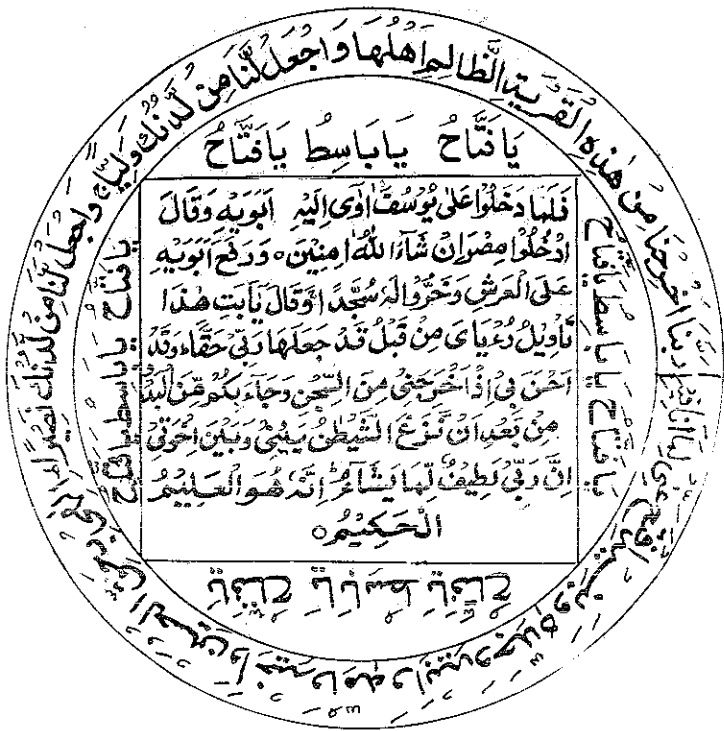 رَبَّنَا اَخْرِجْنَا مِنْ هٰذِهِ الْقَرْيَةِ الظَّالِمِ اَهْلُهَا وَاجْعَلْ لَّنَا مِنْ لَّدُنْكَ وَلِيًّا ج وَاجْعَلْ لَّنَا مِنْ لَّدُنْكَ نَصِيْرًا الٰهي بحق الحسين واخيه وامه وابيه وجده وبنيه
يَا فَتَّاحُ يَا بَاسِطُ يَا فَتَّاحُ
يَا فَتَّاحُ يَا بَاسِطُ يَا فَتَّاحُ
فَلَمَّا دَخَلُوْا عَلٰى يُوْسُفَ اٰوٰى اِلَيْهِ اَبَوَيْهِ وَقَالَ
ادْخُلُوْا مِصْرَ اِنْ شَآءَ اللّٰهُ اٰمِنِيْنَ ○ وَرَفَعَ اَبَوَيْهِ
عَلَى الْعَرْشِ وَخَرُّوْا لَهٗ سُجَّدًا ۚ وَقَالَ يٰاَبَتِ هٰذَا
تَاْوِيْلُ رُءْيَاىَ مِنْ قَبْلُ قَدْ جَعَلَهَا رَبِّىْ حَقًّا ؕ وَقَدْ
اَحْسَنَ بِىْ اِذْ اَخْرَجَنِىْ مِنَ السِّجْنِ وَجَآءَ بِكُمْ مِّنَ الْبَدْوِ
مِنْۢ بَعْدِ اَنْ نَّزَغَ الشَّيْطٰنُ بَيْنِىْ وَبَيْنَ اِخْوَتِىْ
اِنَّ رَبِّىْ لَطِيْفٌ لِّمَا يَشَآءُ ؕ اِنَّهٗ هُوَ الْعَلِيْمُ
الْحَكِيْمُ ○
يَا فَتَّاحُ يَا بَاسِطُ يَا فَتَّاحُ
يَا فَتَّاحُ يَا بَاسِطُ يَا فَتَّاحُ